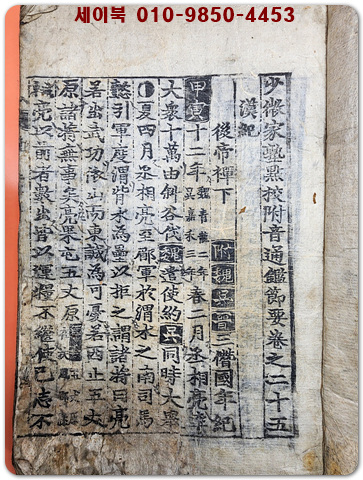 세이북 010-9850-4453
少微家塾點校附音通鑑節要卷之二十五
漢紀
後帝禪下 附魏吳晉三僭國年紀
甲寅十二年 春二月丞相亮
大衆十萬由斜谷伐魏遣使約吳同時大擧
夏四月丞相亮至郿軍於渭水之南司馬
懿引軍度渭背水爲壘以拒之謂諸將曰亮
若出武功依山而東誠爲可憂若西上五丈
原諸將無事矣亮果屯五丈原
亮以前者數出皆以運糧不繼使己志不